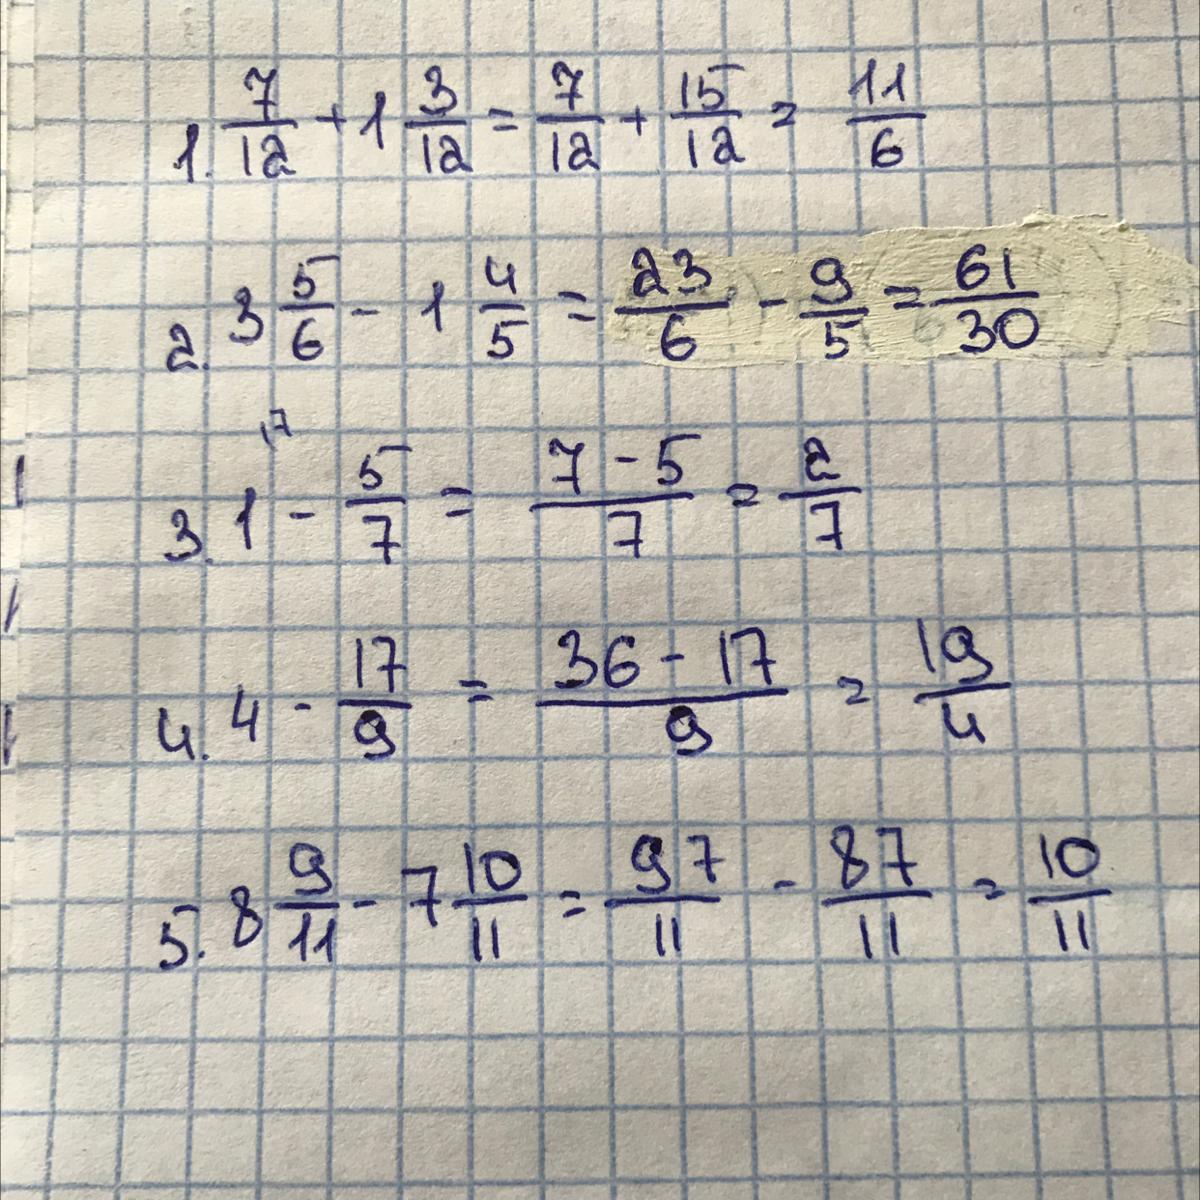 1. 7/12 + 1 3/12 = 7/12 + 15/12 = 11/6
2. 3 5/6 - 1 4/5 = 23/6 - 9/5 = 61/30
17
3. 1 - 5/7 = 7-5/7 = 2/7
4. 4 - 17/9 = 36-17/9 = 19/4
5. 8 9/11 - 7 10/11 = 97/11 - 87/11 = 10/11